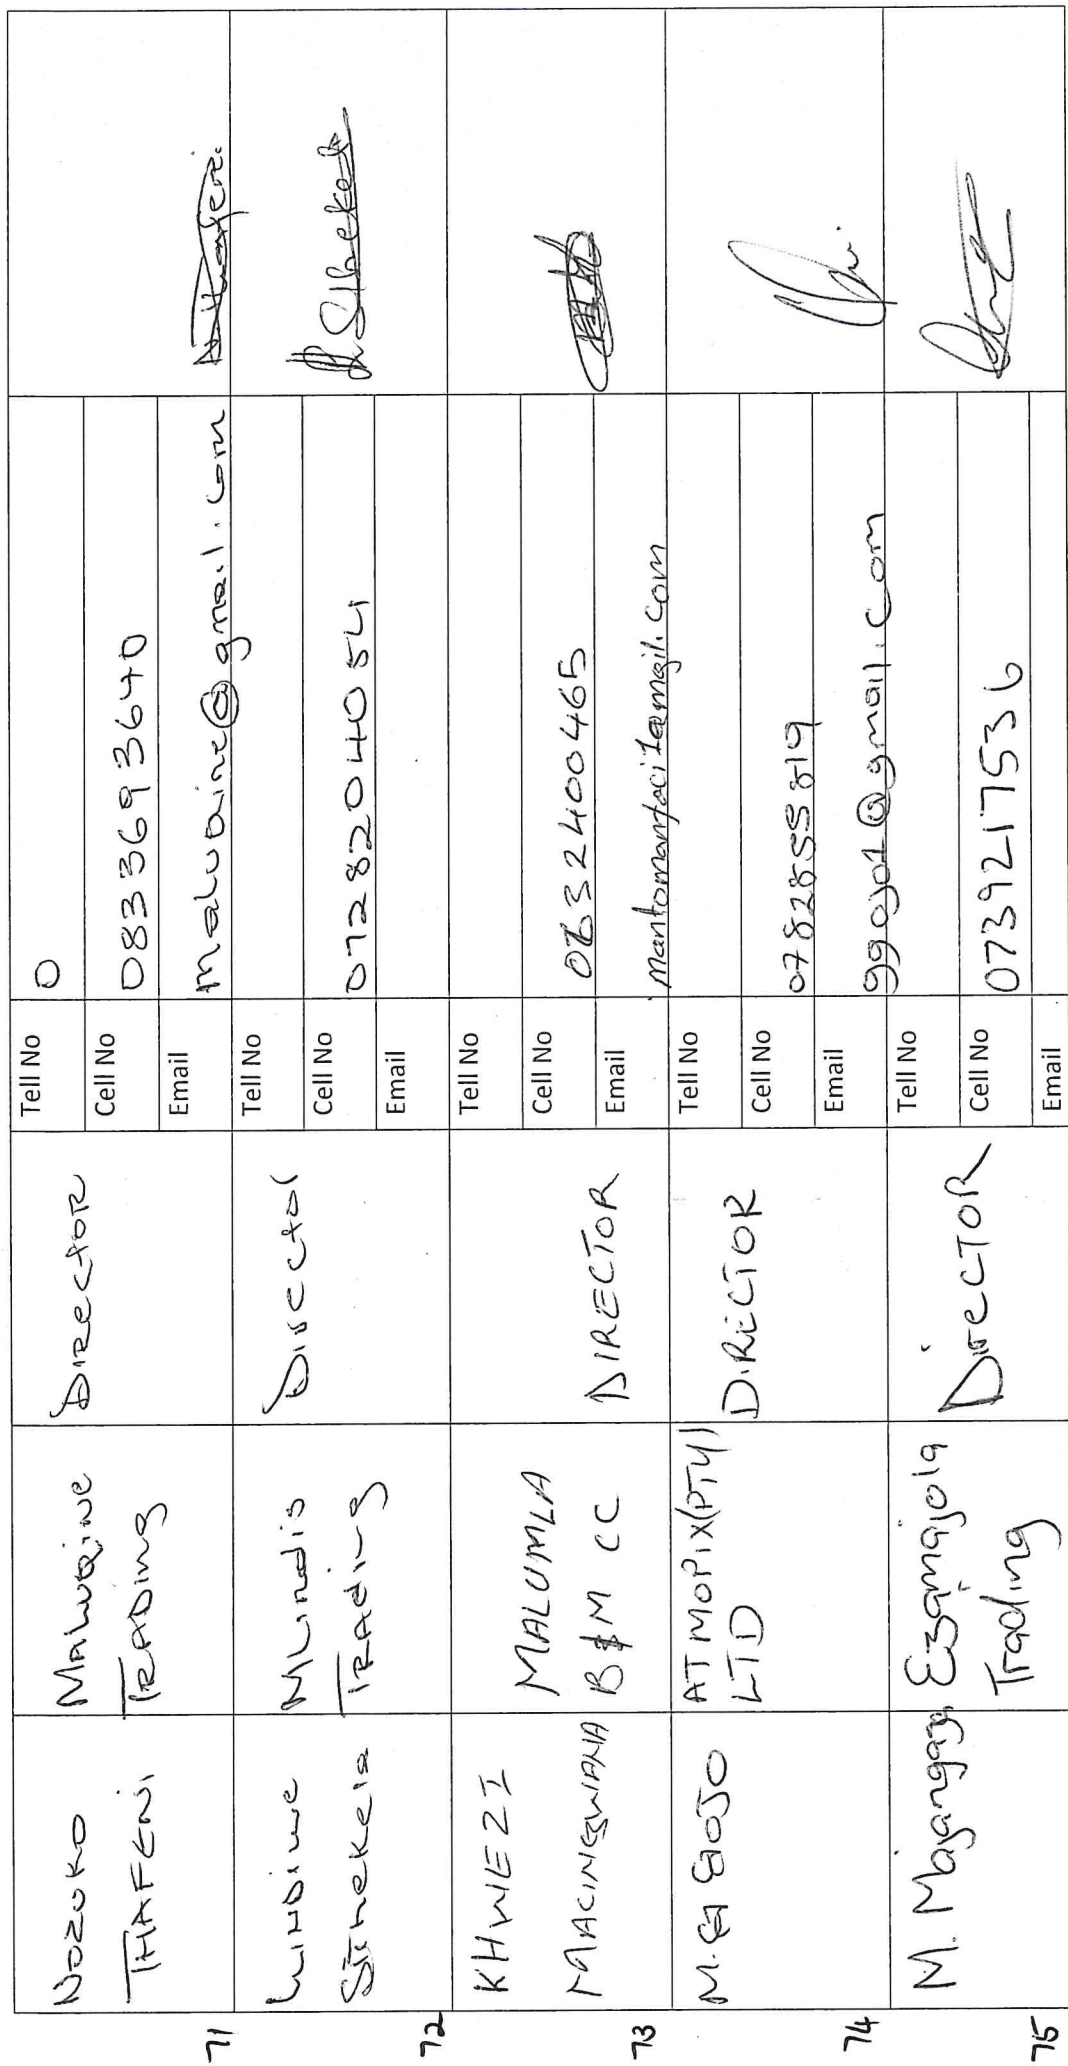 NOZUKO
THAFENI
MALUQINE
TRADING
DIRECTOR
Tell No
0
Cell No
0833693640
Email
maluqine@gmail.com
71
LINDIWE
Mlindis
TRading
Director
Tell No
Cell No
0728204054
Email
72
KHWEZI
MACINGWANA
MALUMLA
B & M CC
DIRECTOR
Tell No
Cell No
Email
73
M.G GOJO
ATMOPIX (PTY)
LTD
DIRECTOR
Tell No
Cell No
0782855819
Email
ggojo1@gmail.com
74
M. Majangaza
Ezamajola
Trading
DIrECTOR
Tell No
Cell No
0739217536
Email
75